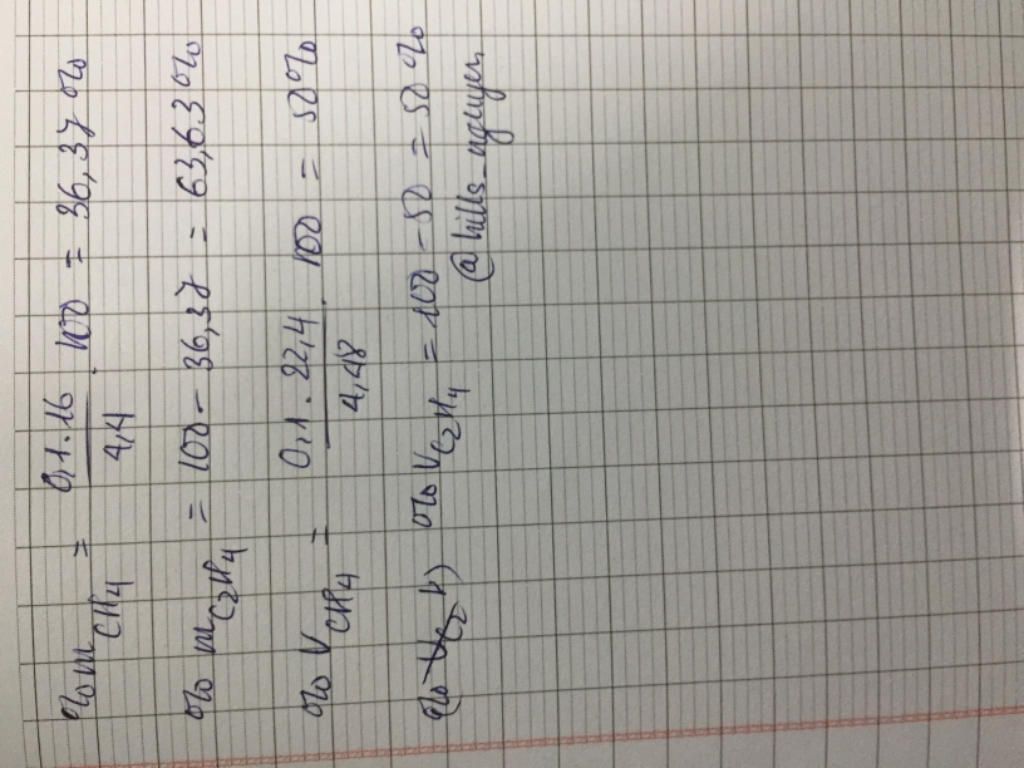 %m CH4 = 0,1.16 / 4,4 . 100 = 36,37 %
% m C2H4 = 100 - 36,37 = 63,63 %
% V CH4 = 0,1 . 22,4 / 4,48 . 100 = 50 %
(% V C2 H) % V C2H4 = 100 - 50 = 50 %
@hills_nguyen